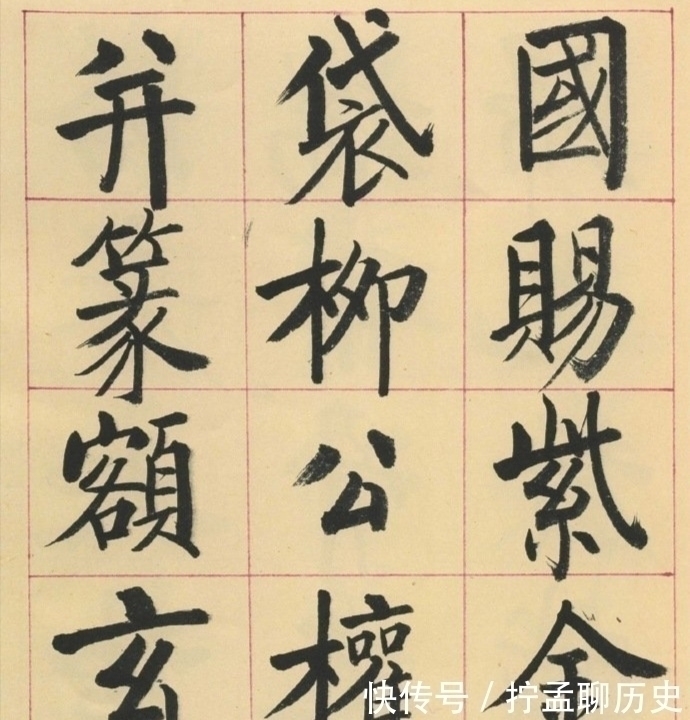 國賜紫金
袋柳公權
并篆額玄
快传号 / 拧孟聊历史